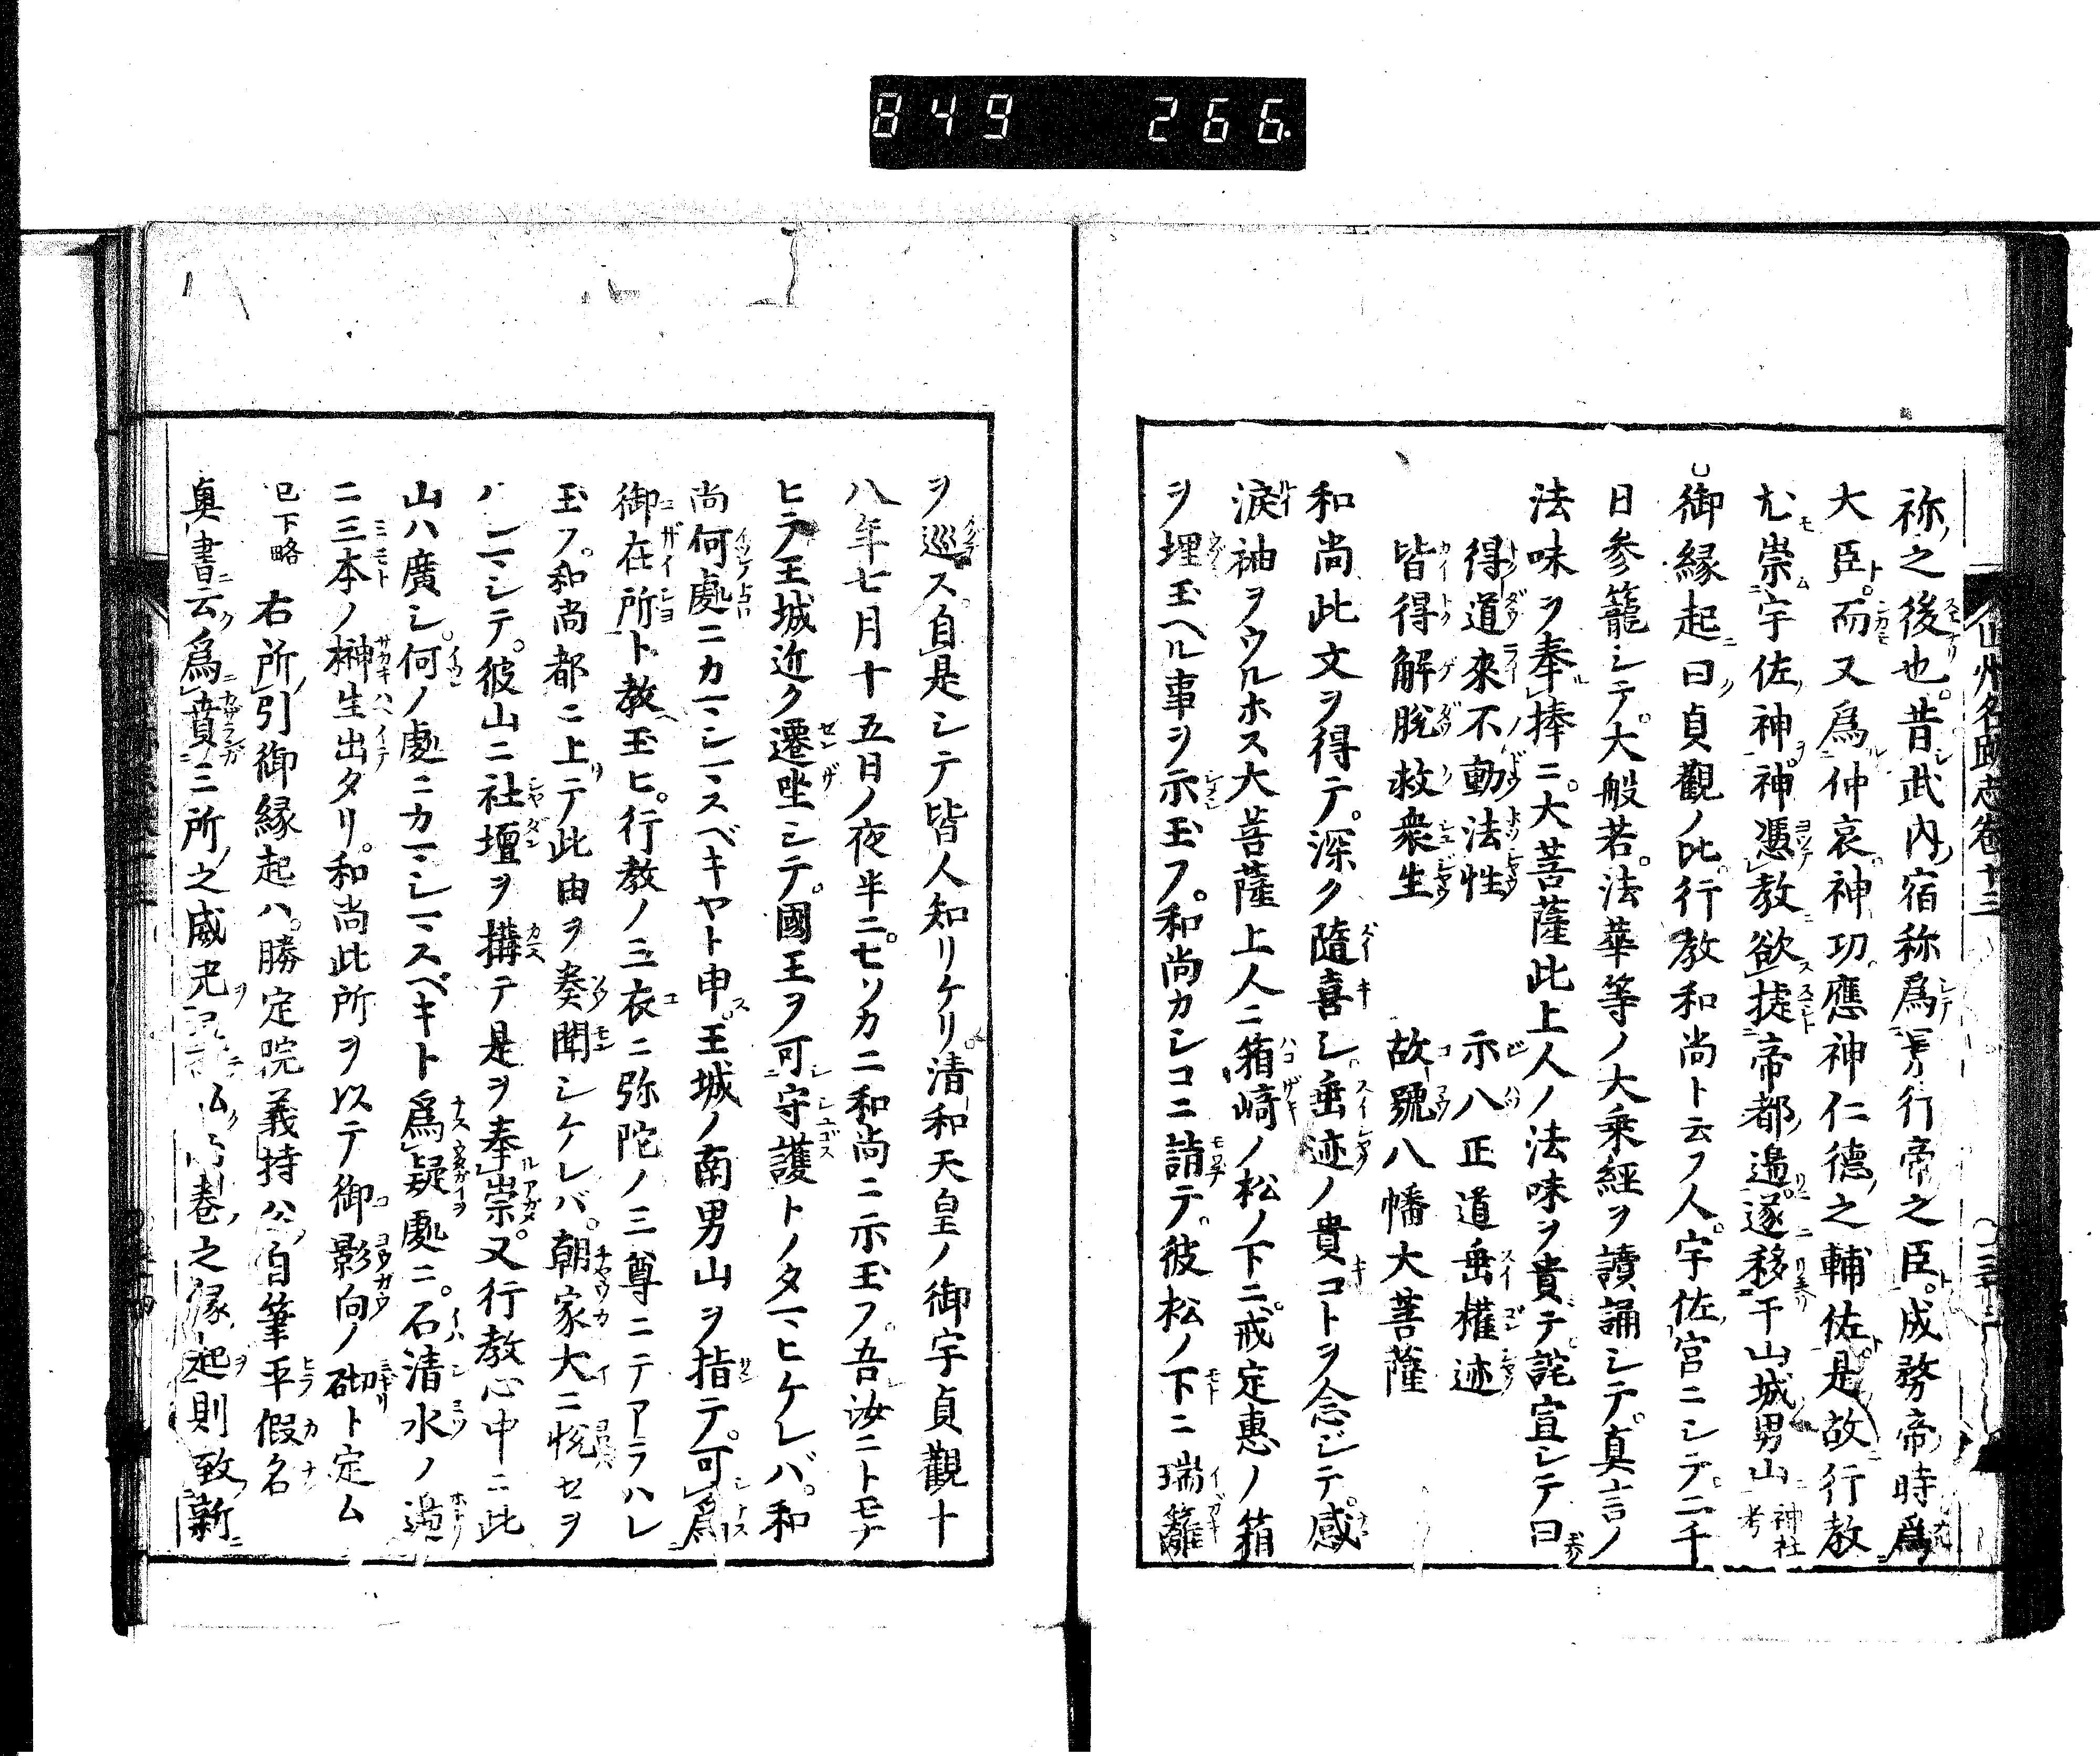 849 266.
山州名跡志卷十三
祢之後也。昔武内宿祢爲景行帝之臣。成務帝時爲
大臣。而又爲仲哀神功應神仁德之輔佐。是故行教
尤崇宇佐神。神憑教欲捷帝都邊。遂移干山城男山 神社考
御縁起曰貞觀ノ比。行教和尚ト云フ人。宇佐宮ニシテ。二千
日参籠シテ。大般若。法華等ノ大乘經ヲ讀誦シテ。真言ノ
法味ヲ奉捧ニ。大菩薩此上人ノ法味ヲ貴テ詫宣シテ曰
得道來不動法性 示八正道垂權迹
皆得解脫救衆生 故號八幡大菩薩
和尚此文ヲ得テ。深ク隨喜シ垂迹ノ貴コトヲ念ジテ。感
涙袖ヲウルホス大菩薩上人ニ箱﨑ノ松ノ下ニ。戒定惠ノ箱
ヲ埋玉ヘル事ヲ示玉フ。和尚カシコニ詣テ。彼松ノ下ニ瑞籬
ヲ巡ス。自是シテ皆人知リケリ。清和天皇ノ御宇貞觀十
八年七月十五日ノ夜半ニ。七ソカニ和尚ニ示玉フ。吾汝ニトモナ
ヒテ王城近ク遷坐シテ。國王ヲ可守護トノタマヒケレバ。和
尚何處ニカマシマスベキヤト申。王城ノ南男山ヲ指テ。可爲
御在所ト教玉ヒ。行教ノ三衣ニ弥陀ノ三尊ニテアラハレ
玉フ。和尚都ニ上テ此由ヲ奏聞シケレバ。朝家大ニ悦セヲ
ハシマシテ。彼山ニ社壇ヲ搆テ是ヲ奉崇。又行教心中ニ此
山ハ廣シ。何ノ處ニカマシマスベキト爲疑處ニ。石清水ノ邊
ニ三本ノ榊生出タリ。和尚此所ヲ以テ御影向ノ砌ト定ム
已下略 右所引御縁起ハ。勝定院義持公自筆平假名
奥書云爲賁三所之威光 卷之縁起則致新